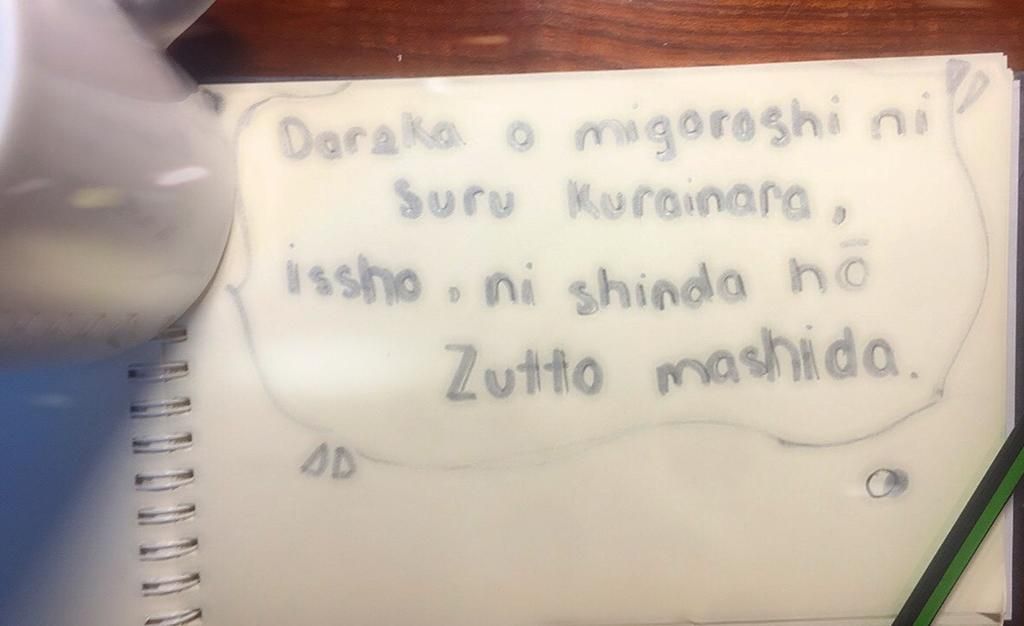 Daraka o migoroshi ni
suru kurainara,
issho, ni shinda hō
Zutto mashida.